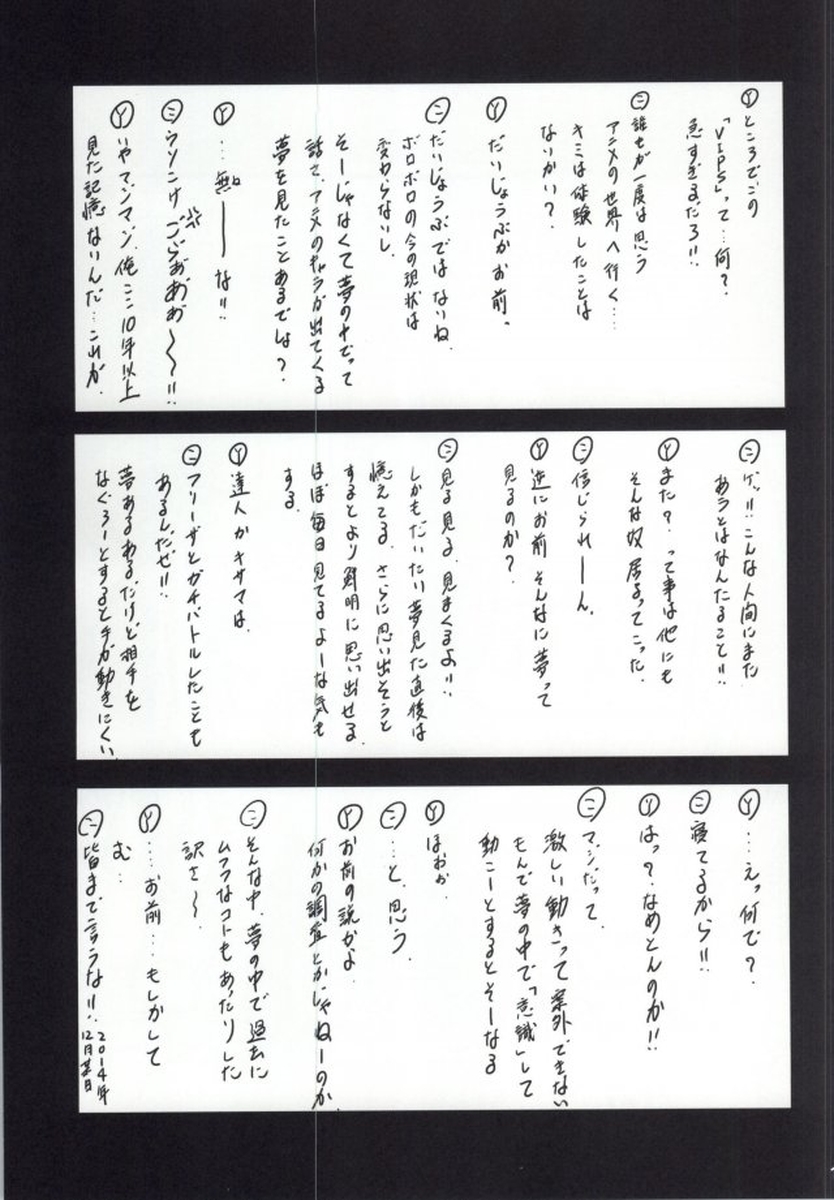 Ⓨところでこの
「VIPS」って…何?
急すぎるだろ!!
㊁誰もが一度は思う
アニメの世界へ行く…
キミは体験したことは
ないかい?
Ⓨだいじょうぶかお前。
㊁だいじょうぶではないね、
ボロボロの今の現状は
変わらないし
そーじゃなくて夢の中でって
話さ、アニメのキャラが出てくる
夢を見たことあるでしょ?
Ⓨ…無ぇ――な!!
㊁ウソこけ ごらぁぁぁぁ~~!!
Ⓨいやマンマン、俺ここ10年以上
見た記憶ないんだ…これが、
㊁ゲッ!!こんな人間にまた
あうとはなんたること!!
Ⓨまた?って事は他にも
そんな奴居るってこった、
㊁信じられーん、
Ⓨ逆にお前そんなに夢って
見るのか?
㊁見る見る、見まくるよ!!
しかもだいたい夢見た直後は
憶えてる、さらに思い出そうと
するとより鮮明に思い出せる、
ほぼ毎日見てるよーな気も
する、
Ⓨ達人かキサマは、
㊁フリーザとガチバトルしたことも
あるんだぜ!!
夢あるあるだけど相手を
なぐろーとすると手が動きにくい、
Ⓨ…えっ何で?
㊁寝てるから!!
Ⓨはっ?、なめとんのか!!
㊁マジだって、
激しい動きって案外、できない
もんで夢の中で「意識」して
動こーとするとそーなる
Ⓨほぉぉ、
㊁…と、思う、
Ⓨお前の説かよ
何かの調査とかじゃねーのか、
㊁そんな中、夢の中で過去に
ムフフなコトもあったりした
訳さ~、
Ⓨ…お前…もしかして
む…
㊁皆まで言うな!!、
2014年
12月某日